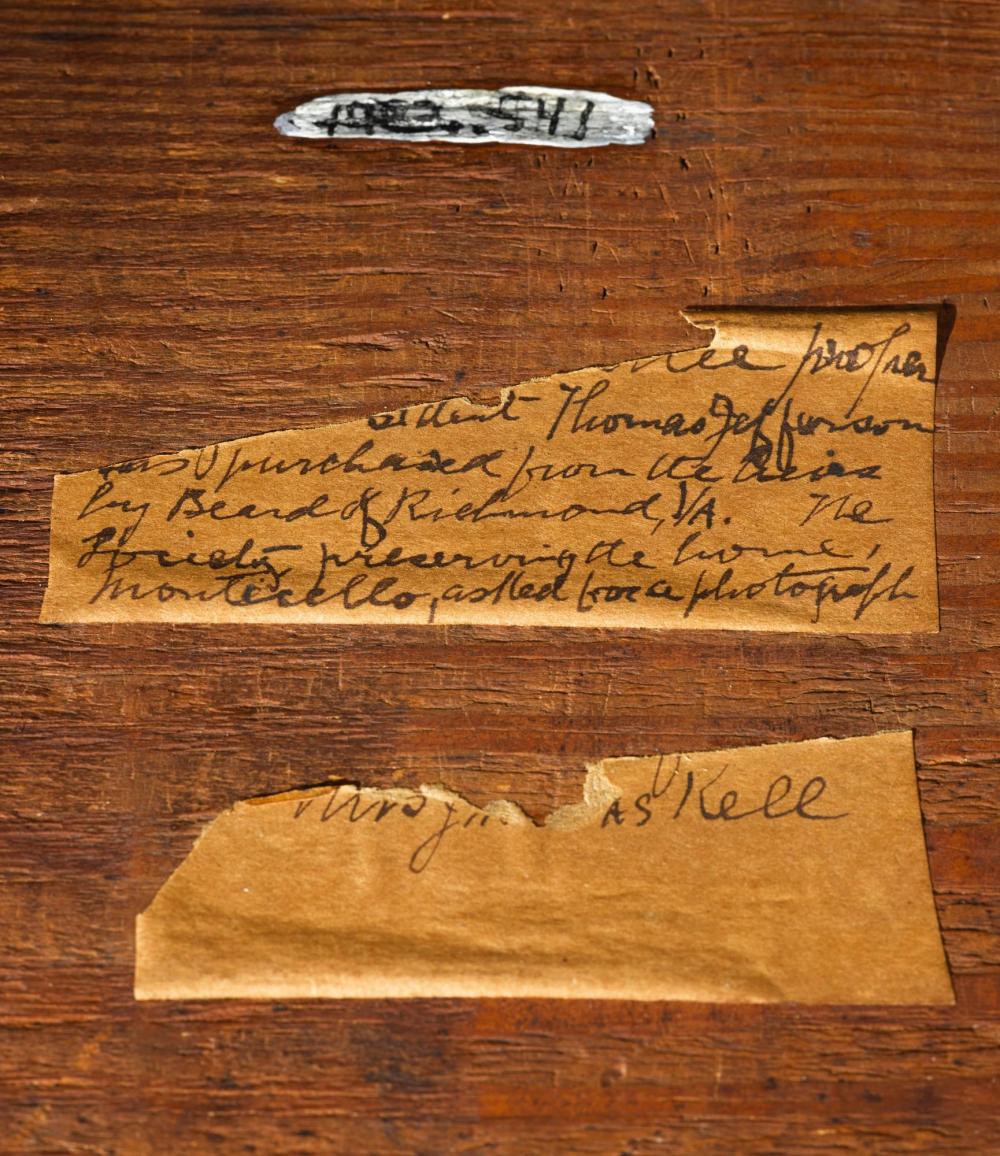 1983.541
the proper
sident Thomas Jefferson
was purchased from the heirs
by Beard of Richmond, VA. The
Society preserving the home,
Monticello, asked for a photograph
Mrs
as Kell